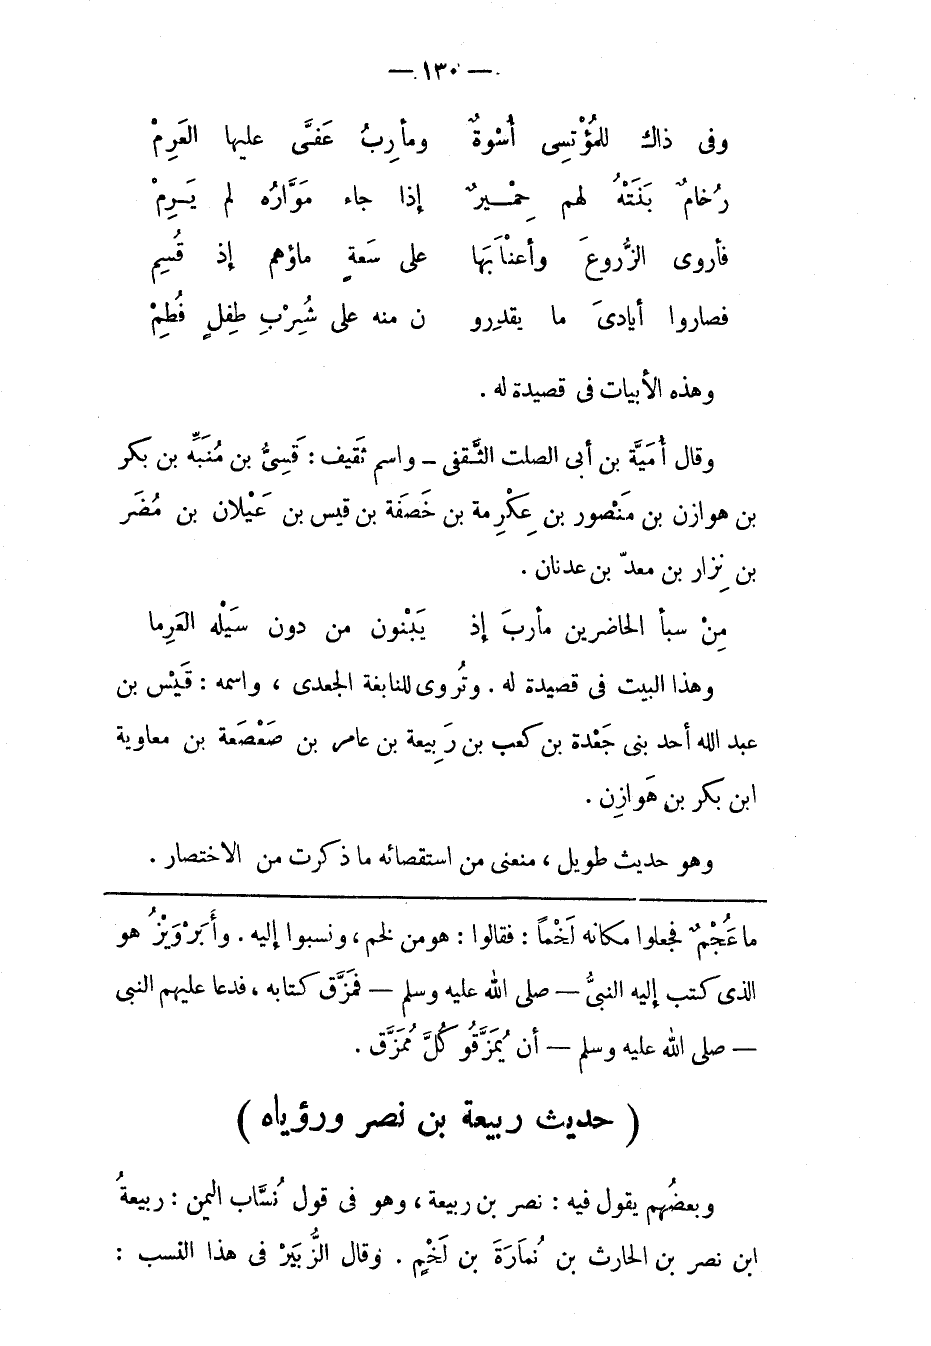 — ١٣٠ —
وفى ذاك للمُؤْتسِى أُسْوةٌ ومأرِبُ عَفىَّ عليها العَرِمْ
رُخامٌ بَنَتْهُ لهم حِمْــيرٌ إذا جاء مَوَّارُه لم يَـرِمْ
فأروى الزُّروعَ وأعنْاَبَها على سَعةٍ ماؤهم إذ قُسِم
فصاروا أيادىَ ما يقدِرو ن منه على شُرِبْ طِفلٍ فُطِمْ
وهذه الأبيات فى قصيدة له .
وقال أُمَيَّة بن أبى الصلت الثَّقفى ــ واسم ثَقيف : قَسِىُّ بن مُنَبِّه بن بكر
بن هوازن بن مَنْصور بن عِكْرِمة بن خَصَفة بن قيس بن عَيْلان بن مُضَر
بن نِزار بن معدّ بن عدنان .
مِنْ سبأ الحاضرين مأربَ إذ يَبْنون من دون سَيْله العَرِما
وهذا البيت فى قصيدة له . وتُروى للنابغة الجعدى ، واسمه : قَيْس بن
عبد الله أحد بنى جَعْدة بن كعب بن رَبِيعة بن عامر بن صَعْصَعة بن معاوية
ابن بكر بن هَوازِن .
وهو حديث طويل ، منعنى من استقصائه ما ذكرت من الاختصار .
ما عُجْمٌ فجعلوا مكانه لَخْماً : فقالوا : هو من لخم ، ونسبوا إليه . وأَبَرْوَيْزُ هو
الذى كتب إليه النبىُّ — صلى الله عليه وسلم — فمَزَّق كتابه ، فدعا عليهم النبى
— صلى الله عليه وسلم — أن يُمَزَّقُو كُلَّ مُمَزَّق .
( حديث ربيعة بن نصر ورؤياه )
وبعضُهم يقول فيه : نصر بن ربيعة ، وهو فى قول نُسَّاب اليمن : ربيعةُ
ابن نصر بن الحارث بن نُمارَةَ بن لَخْمٍ . وقال الزُّبَيْرُ فى هذا النسب :